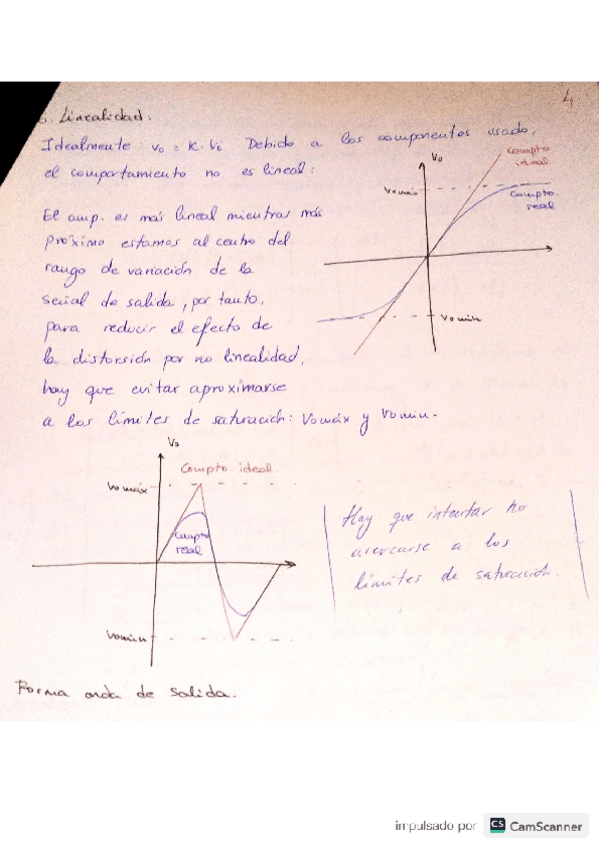 4
6. Linealidad.
Idealmente: Vo = K·Vi Debido a los componentes usado,
el comportamiento no es lineal:
Vo
Compto
ideal
Vo máx
Compto.
real
Vo min
El amp. es más lineal mientras más
próximo estamos al centro del
rango de variación de la
señal de salida, por tanto,
para reducir el efecto de
la distorsión por no linealidad,
hay que evitar aproximarse
a los límites de saturación: Vo máx y Vo min.
Vo
Compto ideal.
Vo máx
Compto
real
Vo min
Hay que intentar no
acercarse a los
límites de saturación.
Forma onda de salida.
impulsado por CS CamScanner